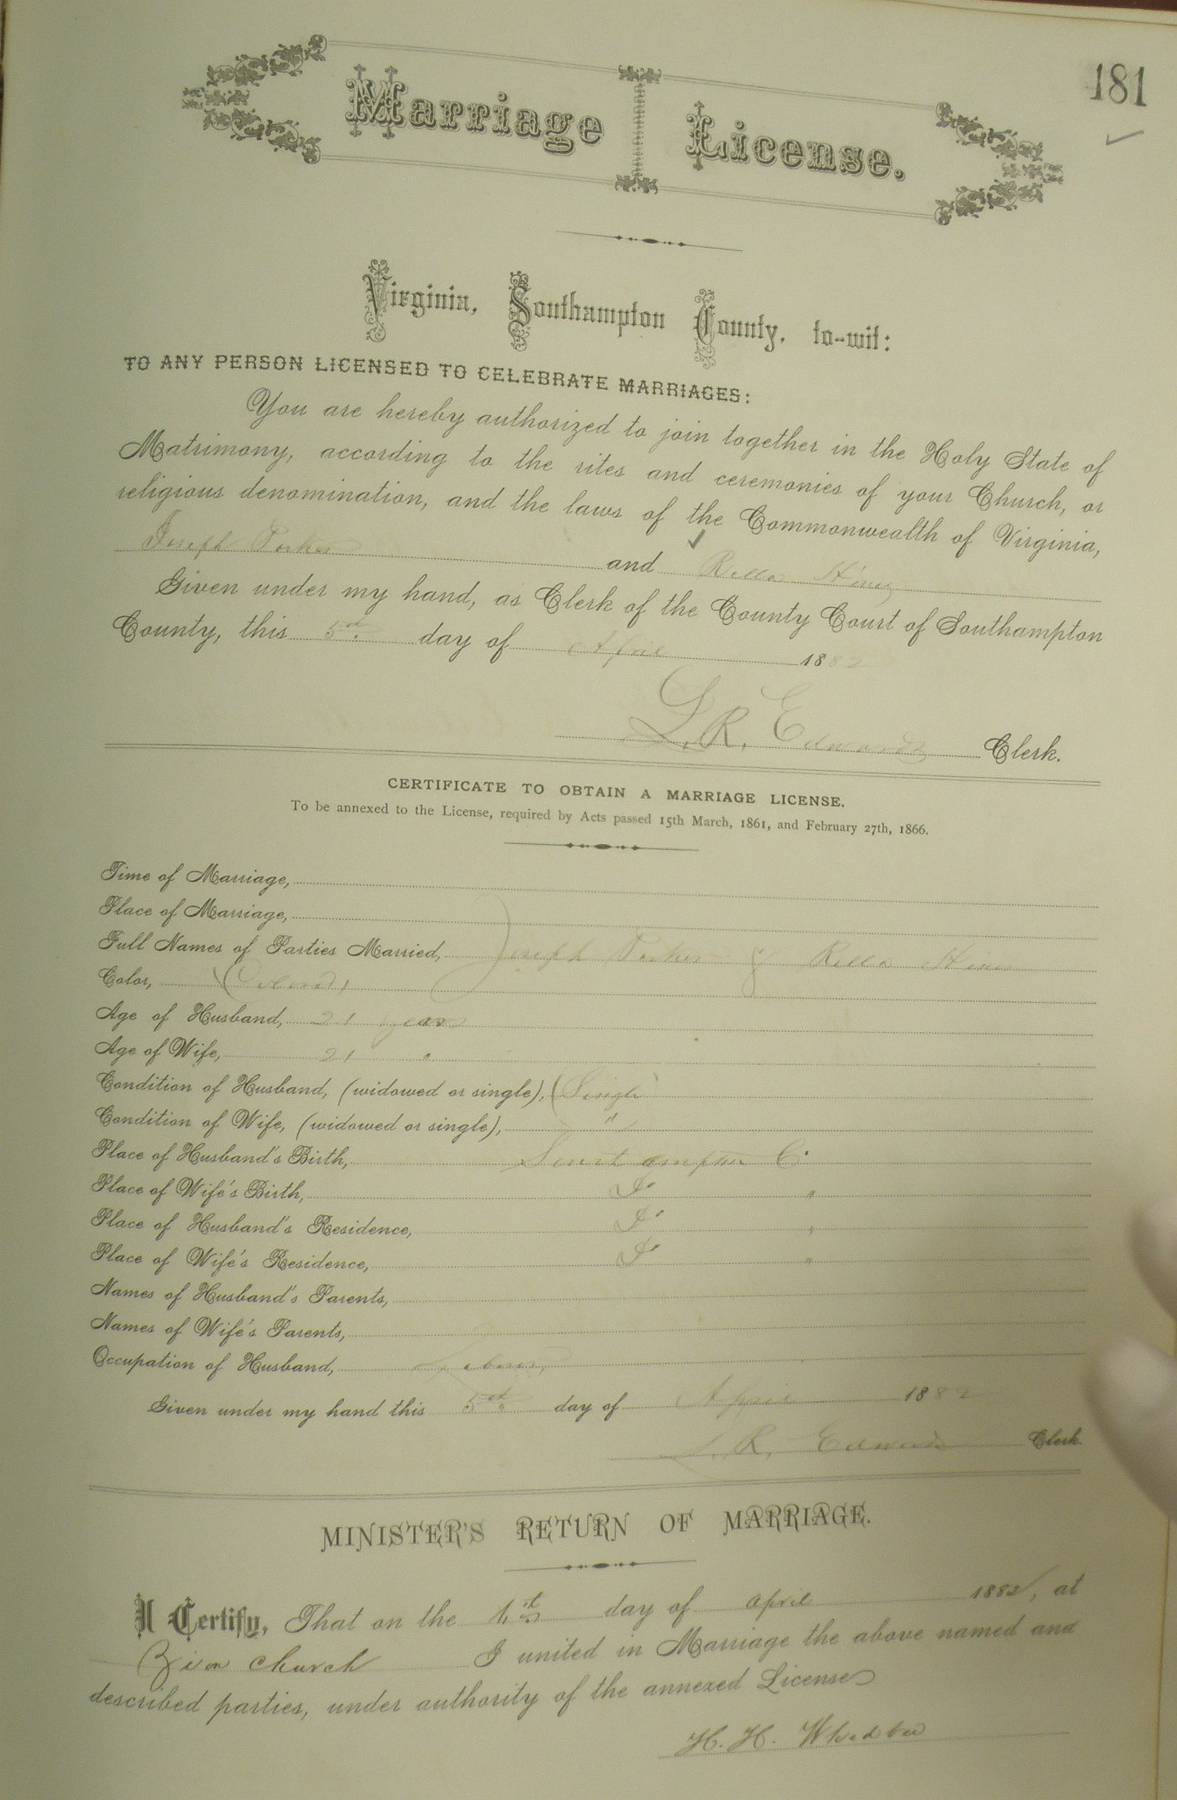 181
Marriage License.
Virginia, Southampton County, to-wit:
TO ANY PERSON LICENSED TO CELEBRATE MARRIAGES:
You are hereby authorized to join together in the Holy State of
Matrimony, according to the rites and ceremonies of your Church, or
religious denomination, and the laws of the Commonwealth of Virginia,
Joseph Parker and Rella Hines
Given under my hand, as Clerk of the County Court of Southampton
County, this 5th day of April 1882
L. R. Edwards Clerk.
CERTIFICATE TO OBTAIN A MARRIAGE LICENSE.
To be annexed to the License, required by Acts passed 15th March, 1861, and February 27th, 1866.
Time of Marriage,
Place of Marriage,
Full Names of Parties Married, Joseph Parker & Rella Hines
Color, Colored
Age of Husband, 21 years
Age of Wife, 21 "
Condition of Husband, (widowed or single), Single
Condition of Wife, (widowed or single), "
Place of Husband's Birth, Southampton Co
Place of Wife's Birth, Do "
Place of Husband's Residence, Do "
Place of Wife's Residence, Do "
Names of Husband's Parents,
Names of Wife's Parents,
Occupation of Husband, Laborer
Given under my hand this 5th day of April 1882
L. R. Edwards Clerk.
MINISTER'S RETURN OF MARRIAGE.
I Certify, That on the day of April 1882, at
Zion Church I united in Marriage the above named and
described parties, under authority of the annexed License
H. H.